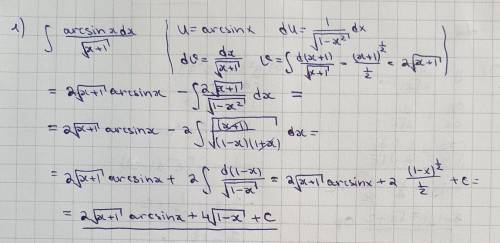 1) ∫ arcsin x dx / √(x+1) | u = arcsin x du = 1/√(1-x²) dx
dv = dx/√(x+1) v = ∫ d(x+1)/√(x+1) = (x+1)^(1/2) / (1/2) = 2√(x+1) |
= 2√(x+1) arcsin x - ∫ 2√(x+1) / √(1-x²) dx =
= 2√(x+1) arcsin x - 2 ∫ √((x+1) / ((1-x)(1+x))) dx =
= 2√(x+1) arcsin x + 2 ∫ d(1-x) / √(1-x) = 2√(x+1) arcsin x + 2 (1-x)^(1/2) / (1/2) + C =
= 2√(x+1) arcsin x + 4√(1-x) + C